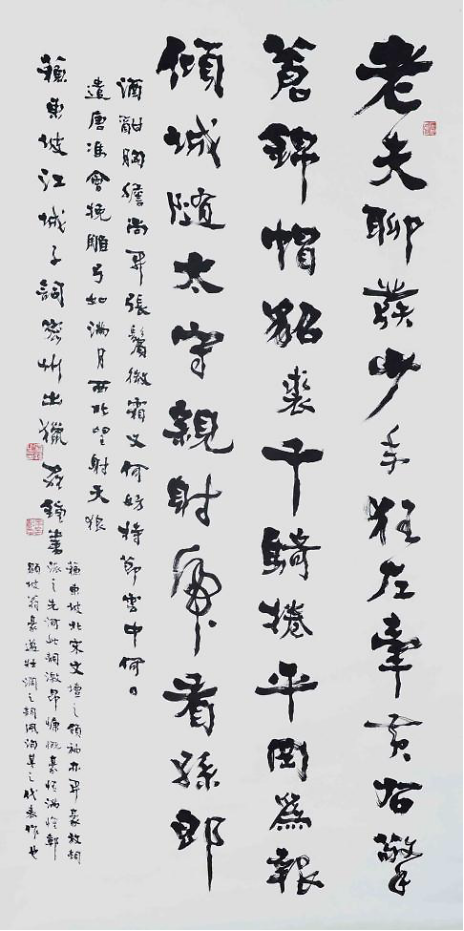 老夫聊發少年狂左牽黃右擎
蒼錦帽貂裘千騎捲平岡爲報
傾城隨太守親射虎看孫郎
酒酣胸膽尚開張鬢微霜又何妨持節雲中何日
遣唐會挽雕弓如滿月西北望射天狼
蘇東坡江城子詞密州出獵書
蘇東坡北宋文壇之領袖亦開豪放詞
派之先河此詞激昂慷慨豪情滿懷
顯坡翁豪邁壯闊之詞風洵其之代表作也